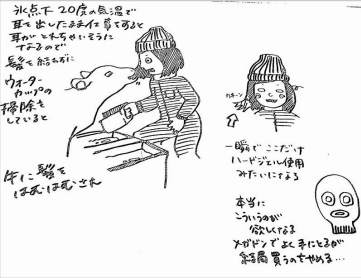 氷点下20度の気温で
耳を出したまま仕事をすると
耳がとれちゃいそうに
なるので
髪を結わずに
ウォーター
カップの
掃除を
していると
牛に髪を
はむはむされ
カキーン
一瞬でここだけ
ハードジェル使用
みたいになる
本当に
こういうのが
欲しくなる
メガドンでよく手にとるが
結局買うのやめる…